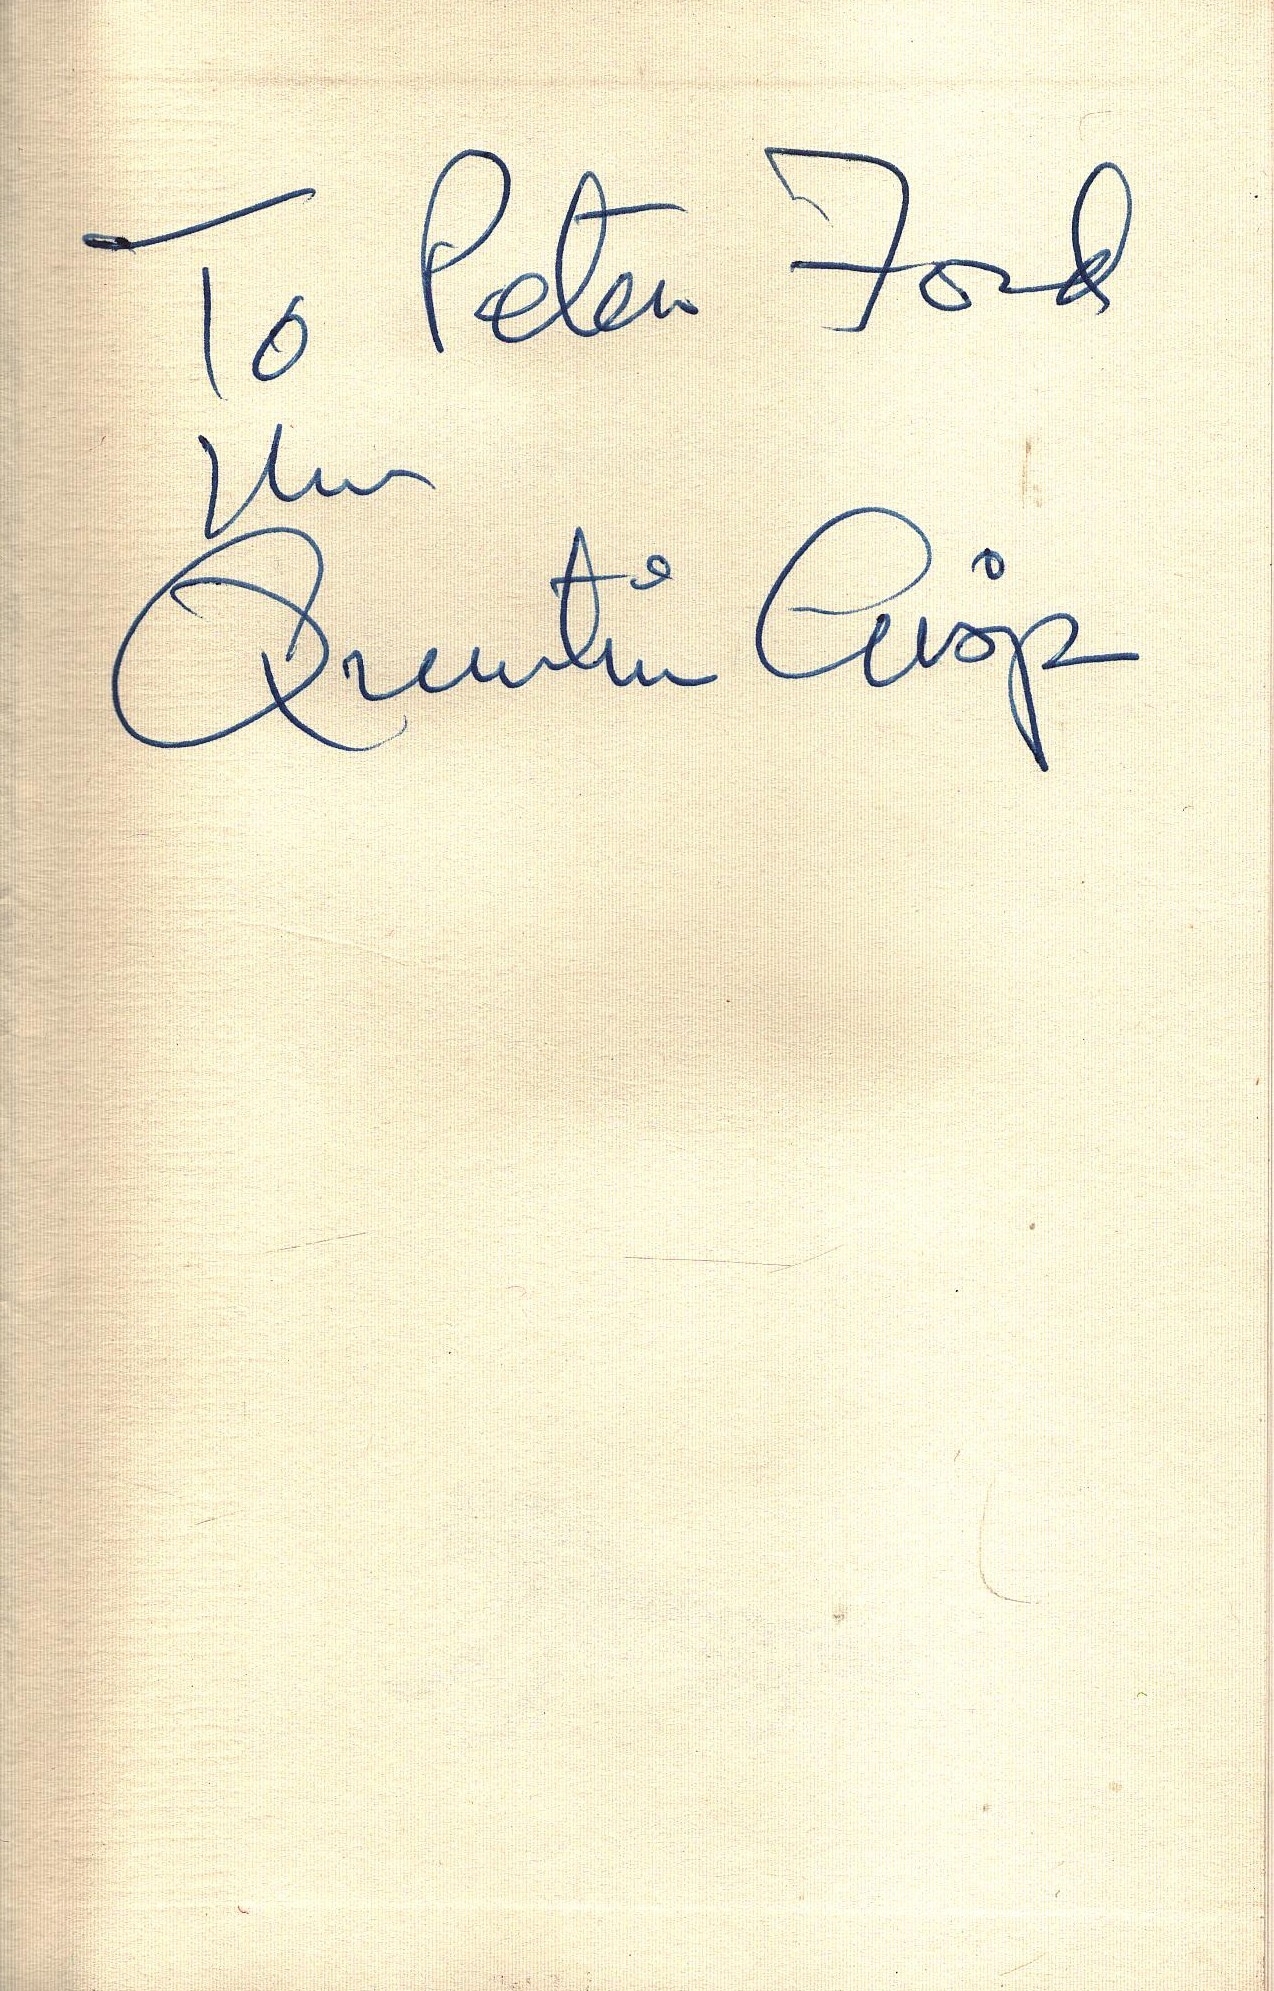 To Peter Ford
from
Quentin Crisp